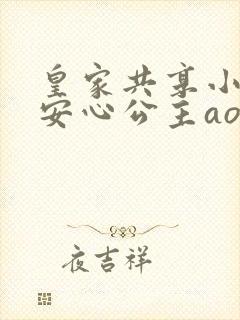 皇家共享小
安心公主ao
夜吉祥